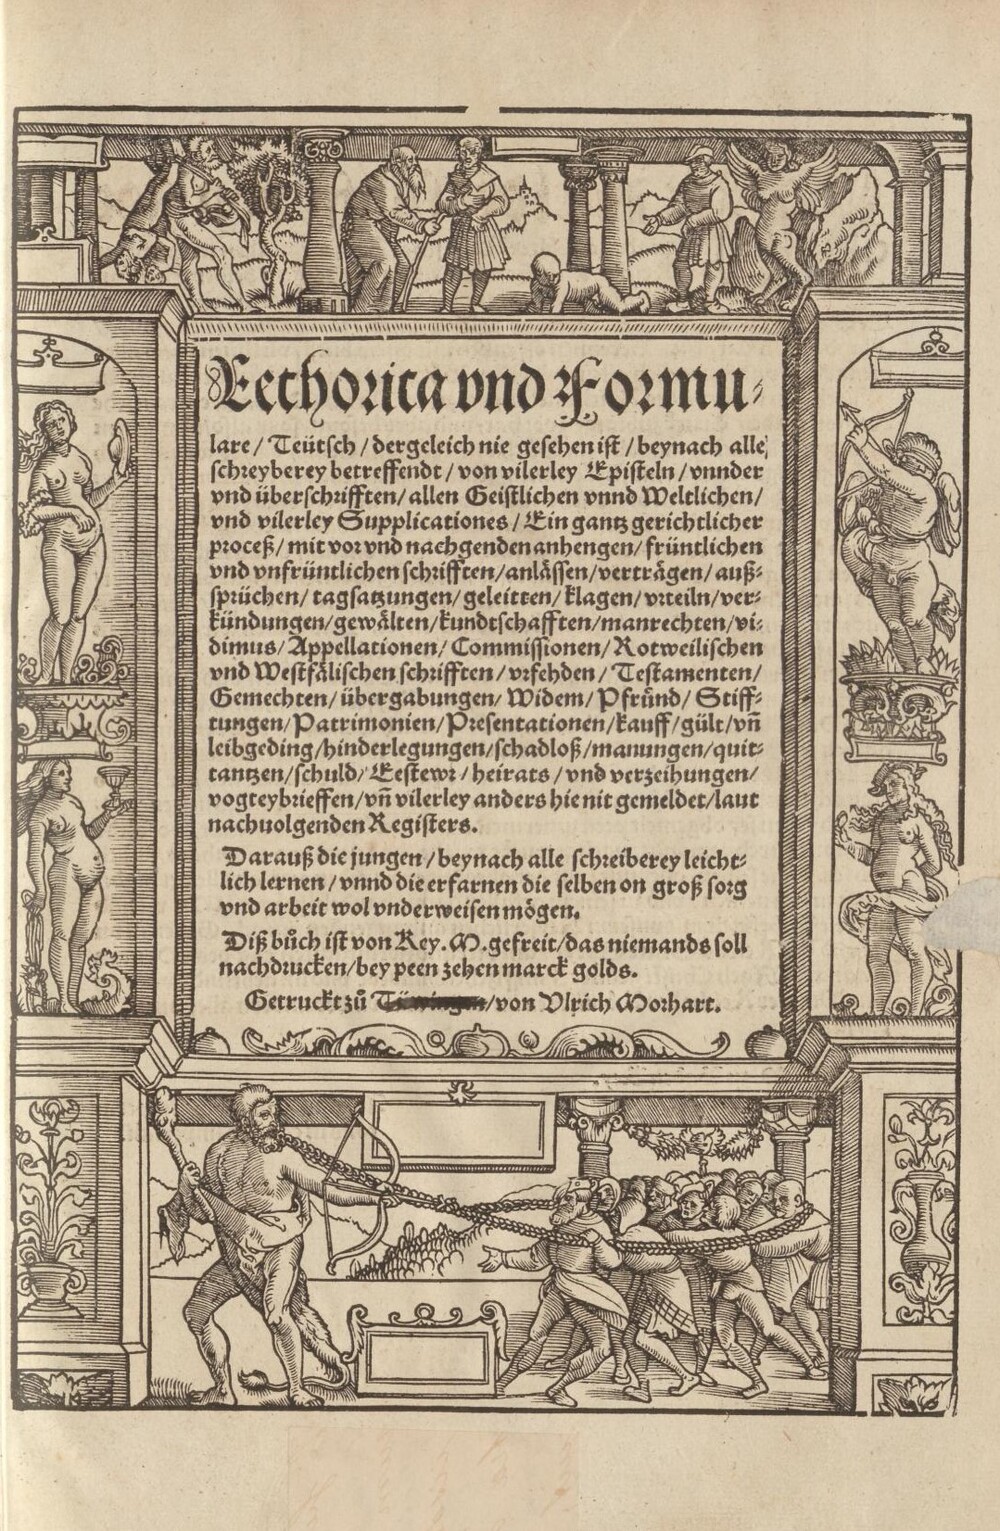 Rethorica vnd Formu⸗
lare / Teütsch / dergeleich nie gesehen ist / beynach alle
schreyberey betreffendt / von vilerley Episteln / vnnder
vnd überschrifften / allen Geistlichen vnnd Weltlichen /
vnd vilerley Supplicationes / Ein gantz gerichtlicher
proceß / mit vor vnd nachgenden anhengen / früntlichen
vnd vnfrüntlichen schrifften / anlässen / verträgen / auß⸗
sprüchen / tagsatzungen / geleitten / klagen / vrteiln / ver⸗
kündungen / gewälten / kundtschafften / manrechten / vi⸗
dimus / Appellationen / Commissionen / Rotweilischen
vnd Westfälischen schrifften / vrfehden / Testamenten /
Gemechten / übergabungen / Widem / Pfründ / Stiff⸗
tungen / Patrimonien / Presentationen / kauff / gült / vñ
leibgeding / hinderlegungen / schadloß / manungen / quit⸗
tantzen / schuld / Eestewr / heirats / vnd verzeihungen /
vogteybrieffen / vñ vilerley anders hie nit gemeldet / laut
nachuolgenden Registers.
Darauß die jungen / beynach alle schreiberey leicht⸗
lich lernen / vnnd die erfarnen die selben on groß sorg
vnd arbeit wol vnderweisen mögen.
Diß bůch ist von Key. M. gefreit / das niemands soll
nachdrucken / bey peen zehen marck golds.
Getruckt zů / von Vlrich Morhart.